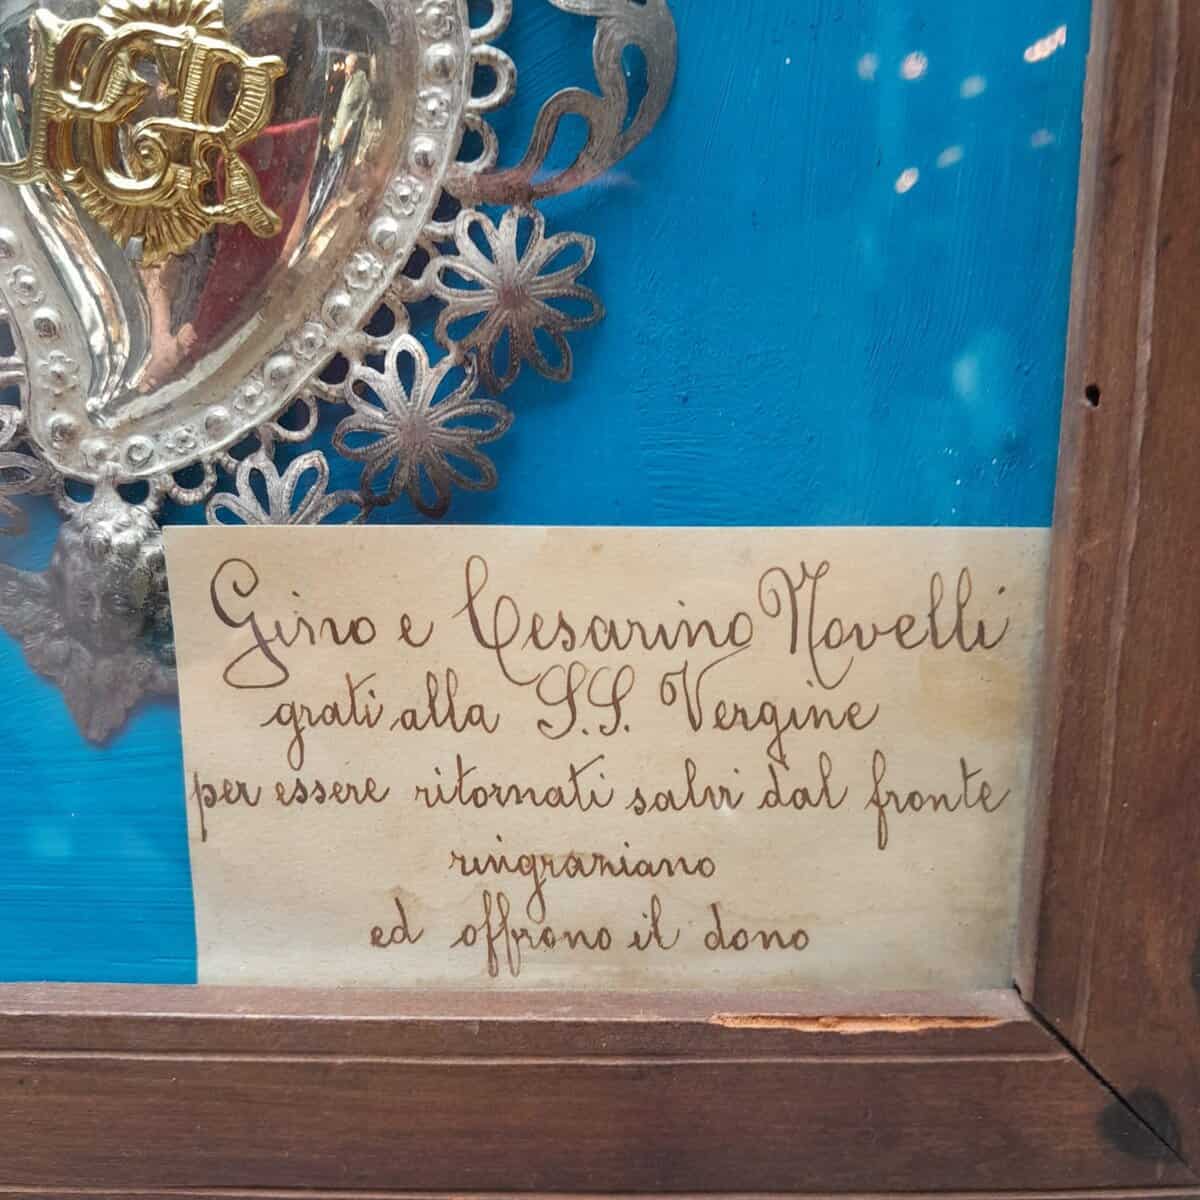 PGR
Gino e Cesarino Novelli
grati alla S.S. Vergine
per essere ritornati salvi dal fronte
ringraziano
ed offrono il dono